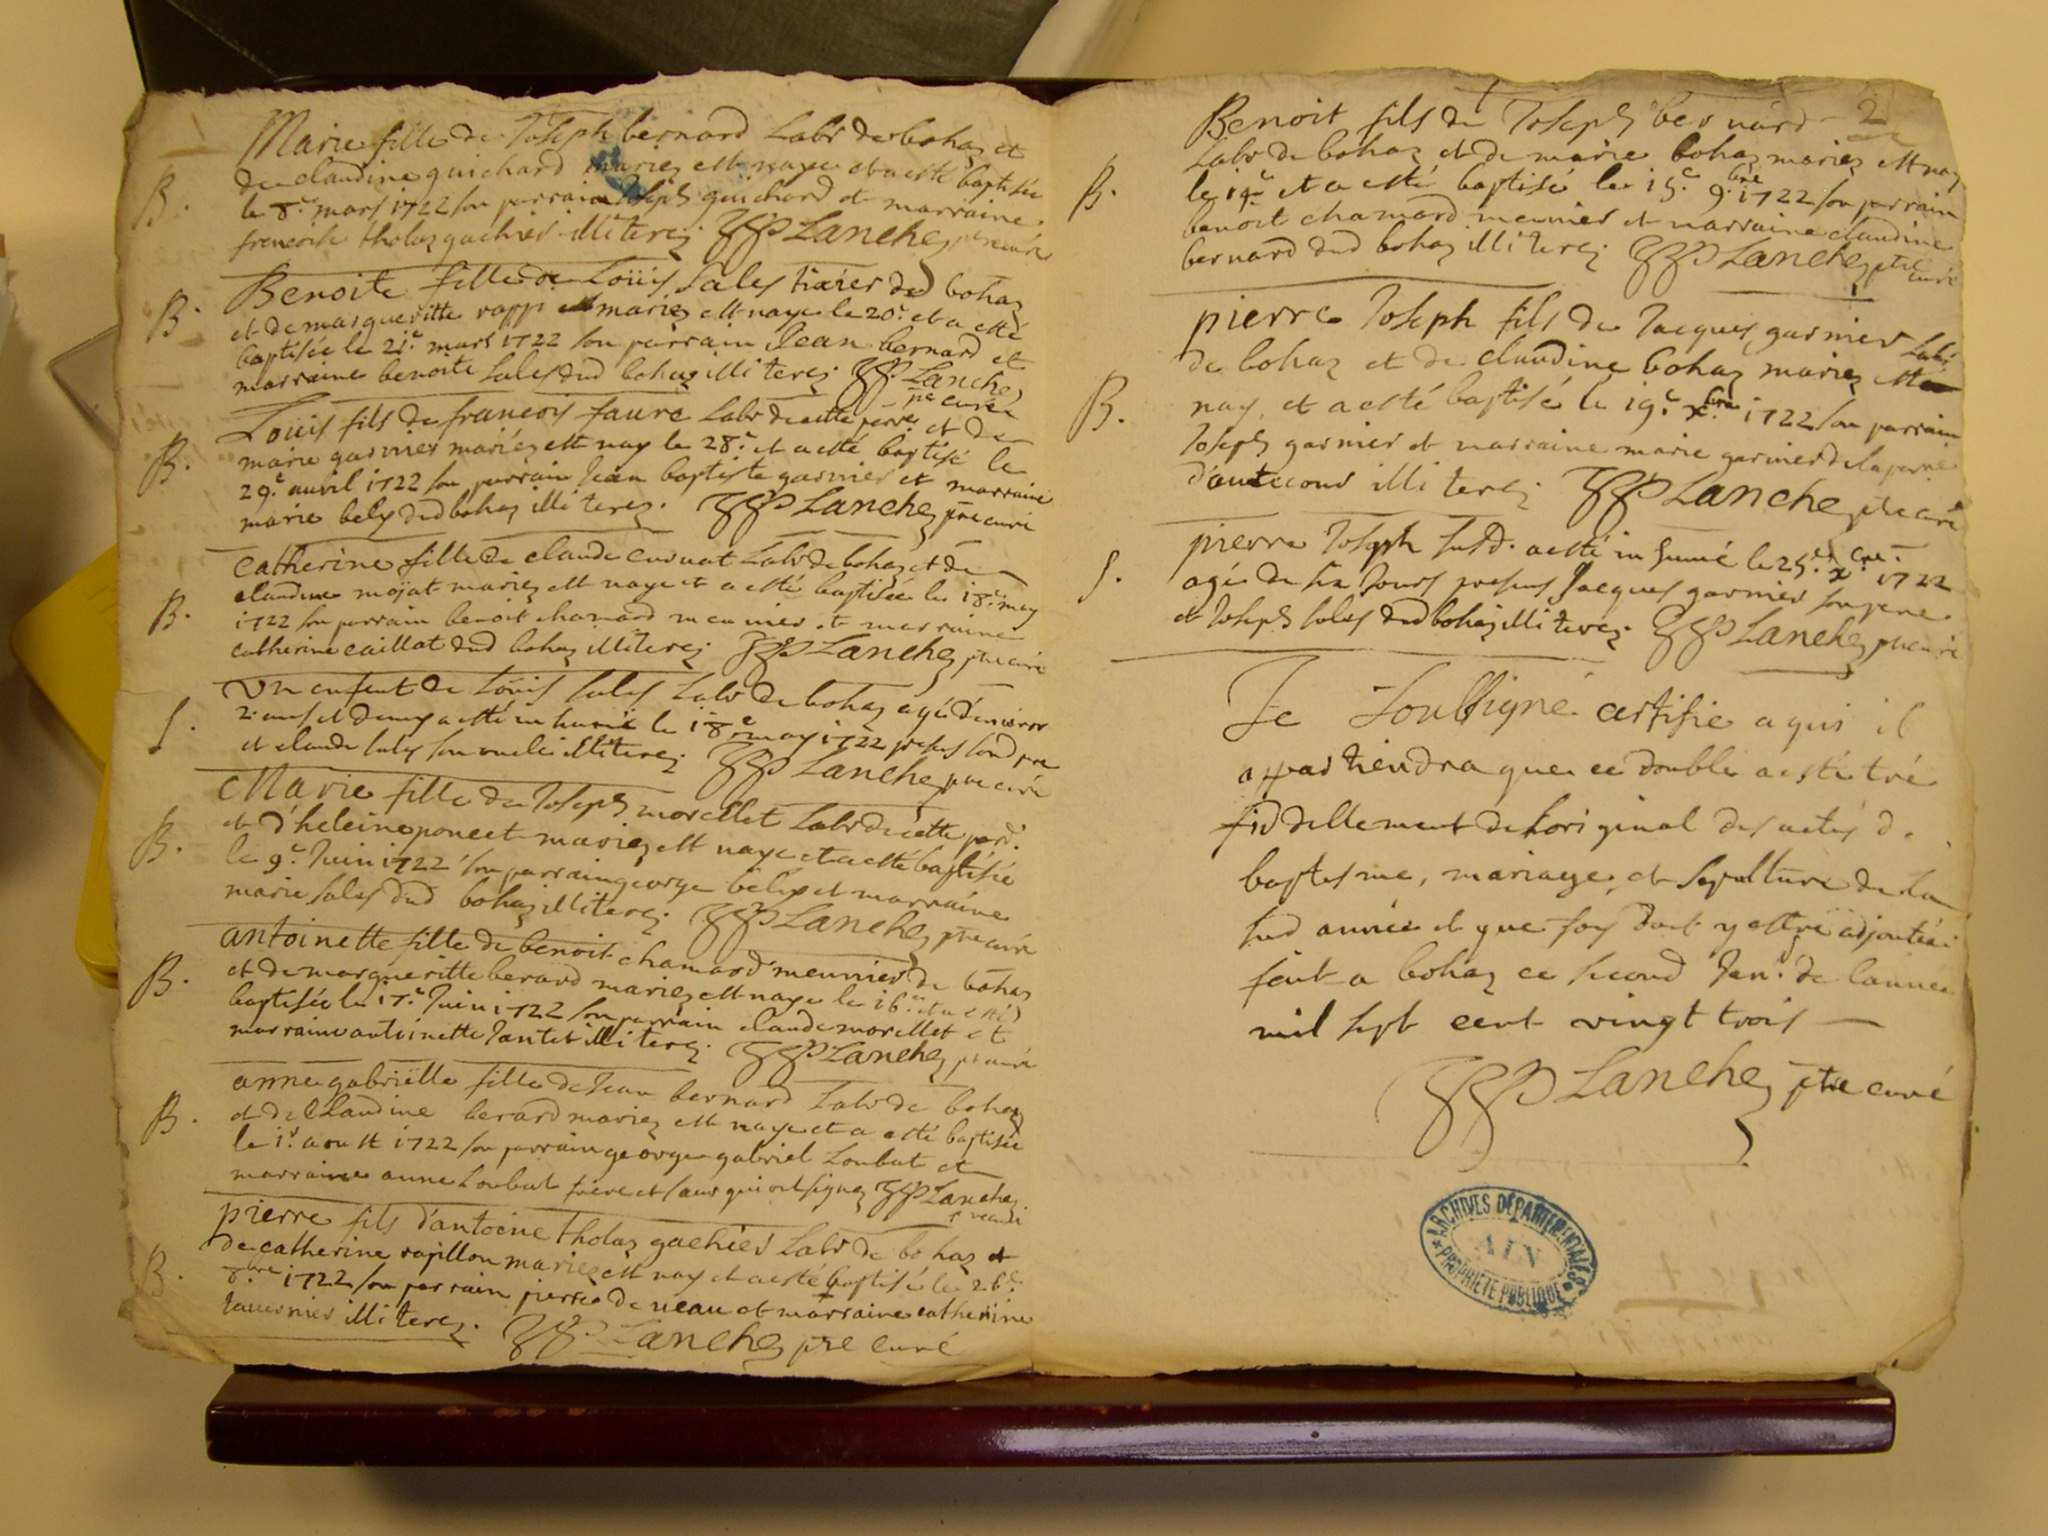 Marie fille de Joseph bernard Labr de bohaz et
de claudine guichard mariez est naye et a esté baptisée
le 8e mars 1722 son parrain Joseph guichard et marraine
francoise tholaz gachier illiterez JJP Lanchez ptre curé
B.
Benoite fille de Loüis sales tixier dud bohaz
et de margueritte rappi mariez est naye le 20e et a esté
baptisée le 21e mars 1722 son parrain Jean bernard et
marraine benoite sales dud bohaz illiterez JJP. Lanchez
ptre curé
B.
Loüis fils de francois faure Labr de cette parre et de
marie garnier mariéz est nay le 28e et a esté baptisé le
29e auril 1722 son parrain Jean baptiste garnier et marraine
marie bely dud bohaz illiterez. JJP Lanchez ptre curé
B.
catherine fille de claude curnat Labr de bohaz et de
claudine mojat mariez est naye et a esté baptisée le 18e may
1722 son parrain benoit chamard meunier et marraine
catherine caillat dud bohaz illiterez JJP Lanchez ptre curé
B.
Un enfent de Loüis sales Labr de bohaz agé denviron
2 ans et demy a esté inhumé le 18e may 1722 presens sond pre
et claude sales son oncle illiterez. JJP Lanchez ptre curé
S.
Marie fille de Joseph morellet Labr de cette parr.
et d'heleine poncet mariez est naye et a esté baptisée
le 9e Juin 1722 son parrain george bely et marraine
marie sales dud bohaz illiterez. JJP Lanchez ptre curé
B.
antoinette fille de benoit chamard meunier de bohaz
et de margueritte berard mariez est naye le 16e et a esté
baptisée le 17e Juin 1722 son parrain claude morellet et
marraine antoinette Jantet illiterez. JJP Lanchez ptre curé
B.
anne gabrielle fille de Jean bernard Labr de bohaz
et de Claudine berard mariez est naye et a esté baptisée
le 1r aoust 1722 son parrain george gabriel Loubat et
marraine anne Loubat frere et sœur qui ont signez JJP Lanchez
B.
pierre fils d'antoine tholaz gachier Labr de bohaz et
de catherine rapillon mariez est nay et a esté baptisé le 26e
8bre 1722 son parrain pierre de ueau et marraine catherine
tauernier illiterez. JJP. Lanchez ptre curé
B.
2
Benoit fils de Joseph bernard
Labr de bohaz et de marie bohaz mariez est nay
le 14e et a esté baptisé le 15e 9bre 1722 son parrain
benoit chamard meunier et marraine claudine
bernard dud bohaz illiterez JJP Lanchez ptre curé
B.
pierre Joseph fils de Jacques garnier Labr
de bohaz et de claudine bohaz mariez est
nay et a esté baptisé le 19e xbre 1722 son parrain
Joseph garnier et marraine marie garnier de la parre
d'autecour illiterez JJP Lanchez ptre curé
B.
pierre Joseph susd. a esté inhumé le 25e xbre 1722
agé de six Jours presens Jacques garnier son pere
et Joseph sales dud bohaz illiterez. JJP Lanchez ptre curé
S.
Je Soussigné certifie a qui il
appartiendra que ce double a esté tiré
fidellement de Loriginal des actes de
baptesme, mariage, et sepulture de la
sud année et que foy doit y estre adjoutée
fait a bohaz ce second Janr. de lannée
mil sept cent vingt trois
JJP Lanchez ptre curé
ARCHIVES DÉPARTEMENTALES
AIN
PROPRIÉTÉ PUBLIQUE